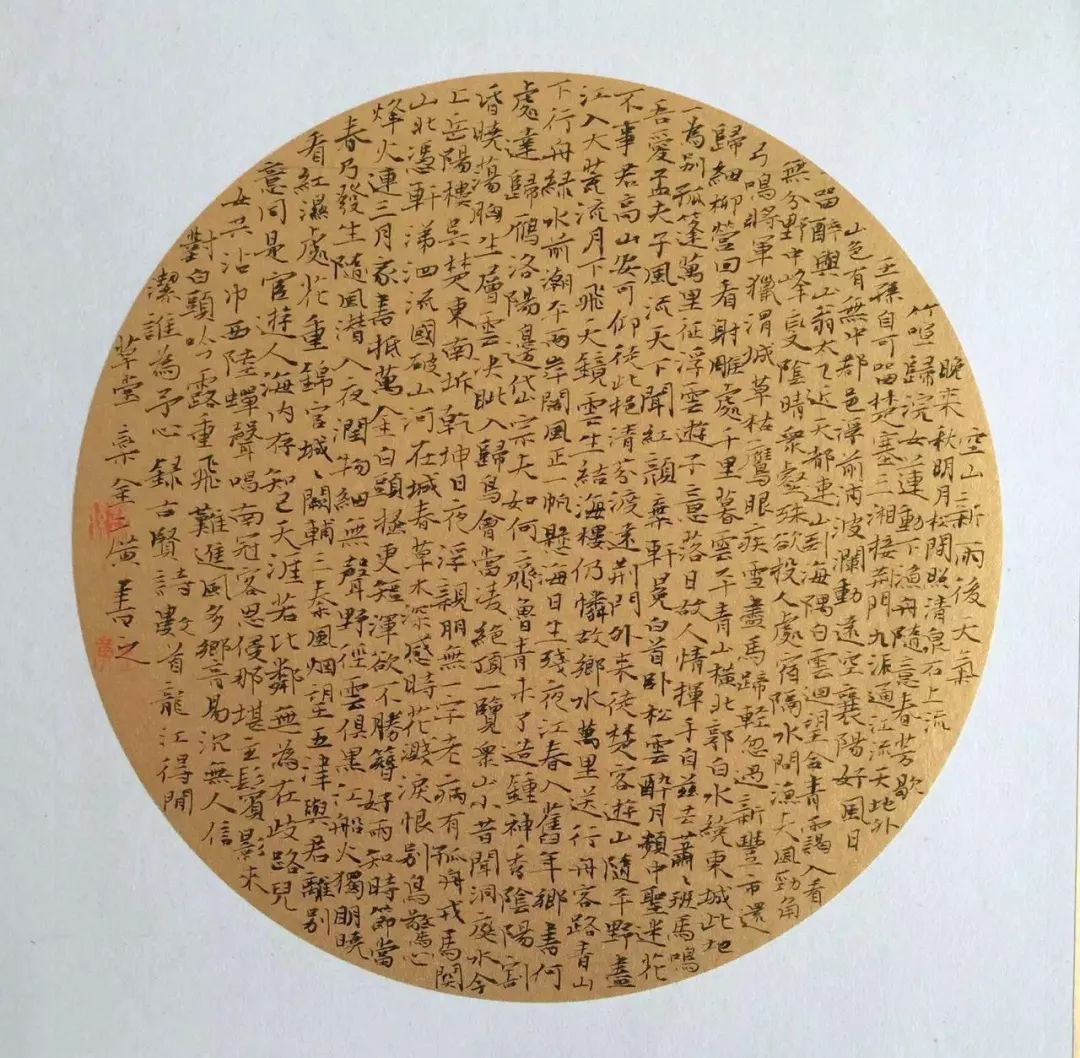 空山新雨後天氣
晚来秋明月松間照清泉石上流
竹喧歸浣女蓮動下漁舟隨意春芳歇
王孫自可留楚塞三湘接荊門九派通江流天地外
山色有無中郡邑浮前浦波瀾動遠空襄陽好風日
留醉與山翁太乙近天都連山到海隅白雲迴望合青靄入看
無分野中峰變陰晴衆壑殊欲投人處宿隔水問漁夫風勁角
弓鳴將軍獵渭城草枯鷹眼疾雪盡馬蹄輕忽過新豐市還
歸細柳營回看射雕處千里暮雲平青山橫北郭白水繞東城此地
一為別孤篷萬里征浮雲遊子意落日故人情揮手自茲去蕭〻班馬鳴
吾愛孟夫子風流天下聞紅顏棄軒冕白首卧松雲醉月頻中聖迷花
不事君高山安可仰徒此挹清芬渡遠荊門外来從楚客遊山隨平野盡
江入大荒流月下飛天鏡雲生結海樓仍憐故鄉水萬里送行舟客路青山
下行舟緑水前潮平兩岸闊風正一帆懸海日生殘夜江春入舊年鄉書何
處達歸鴈洛陽邊岱宗夫如何齊魯青未了造鍾神秀陰陽割
昏曉蕩胸生層雲決眥入歸鳥會當凌絕頂一覽衆山小昔聞洞庭水今
上岳陽樓吳楚東南坼乾坤日夜浮親朋無一字老病有孤舟戎馬関
山北憑軒涕泗流國破山河在城春草木深感時花濺淚恨別鳥驚心
烽火連三月家書抵萬金白頭搔更短渾欲不勝簪好雨知時節當
春乃發生隨風潜入夜潤物細無聲野徑雲俱黑江船火獨明曉
看紅濕處花重錦官城〻闕輔三秦風烟望五津與君離別
意同是宦遊人海内存知己天涯若比鄰無為在歧路兒
女共沾巾西陸蟬聲唱南冠客思侵那堪玄鬢影来
對白頭吟露重飛難進風多響易沉無人信
潔誰為予心 録古賢詩數首龍江得閒
草堂 栾金廣書之